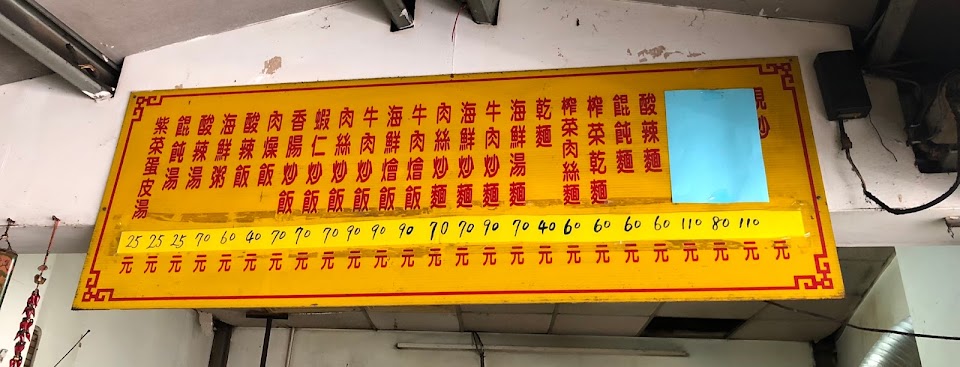 現炒
酸辣麵
餛飩麵
榨菜乾麵
榨菜肉絲麵
乾麵
海鮮湯麵
牛肉炒麵
海鮮炒麵
肉絲炒麵
牛肉燴飯
海鮮燴飯
牛肉炒飯
肉絲炒飯
蝦仁炒飯
香腸炒飯
肉燥飯
酸辣飯
海鮮粥
酸辣湯
餛飩湯
紫菜蛋皮湯
25 25 25 70 60 40 70 70 70 90 90 90 70 70 90 70 40 60 60 60 60 110 80 110
元 元 元 元 元 元 元 元 元 元 元 元 元 元 元 元 元 元 元 元 元 元 元 元 元